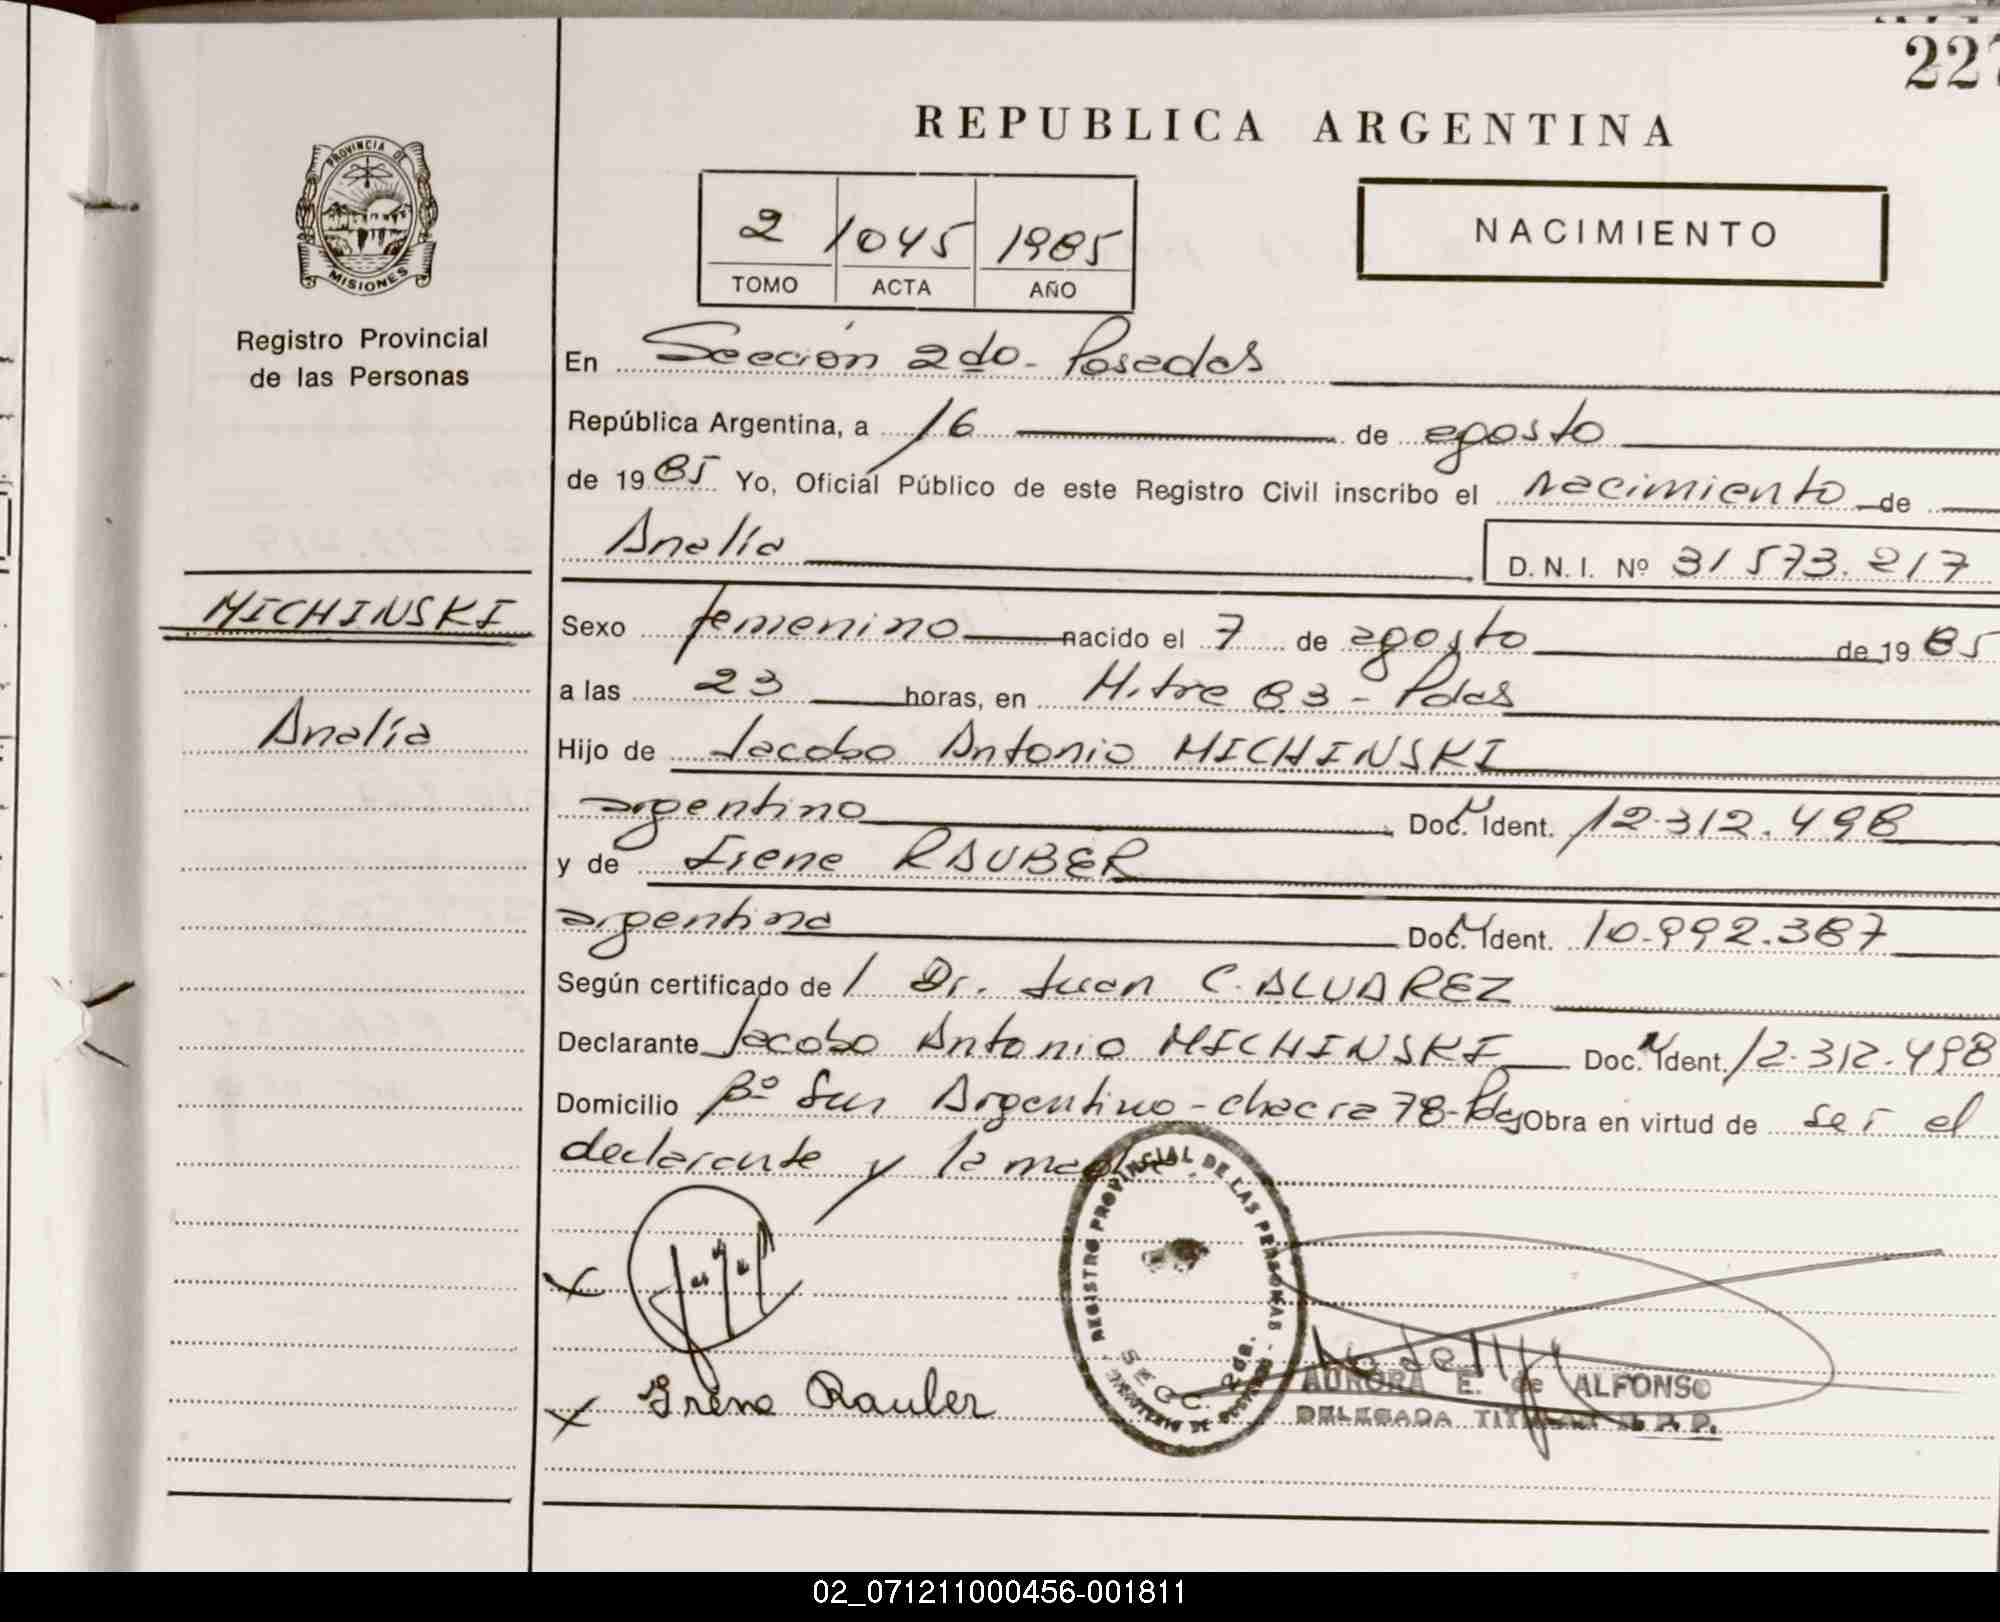 227
REPUBLICA ARGENTINA
PROVINCIA DE
MISIONES
Registro Provincial
de las Personas
2 1045 1985
TOMO ACTA AÑO
NACIMIENTO
En Sección 2do - Posadas
República Argentina, a 16 de agosto
de 1985 Yo, Oficial Público de este Registro Civil inscribo el nacimiento de
Analía
D. N. I. Nº 31573.217
MICHINSKI
Analía
Sexo femenino nacido el 7 de agosto de 1985
a las 23 horas, en Mitre 83 - Pdas
Hijo de Jacobo Antonio MICHINSKI
argentino Doc. Ident. 12.312.498
y de Irene RAUBER
argentina Doc. Ident. 10.992.387
Según certificado de Dr. Juan C. ALVAREZ
Declarante Jacobo Antonio MICHINSKI Doc. Ident. 12.312.498
Domicilio Bº Sur Argentino - chacra 78 - Pdas Obra en virtud de ser el
declarante y la madre
REGISTRO PROVINCIAL DE LAS PERSONAS
SECC. 2da.
Irene Rauber
AURORA E. de ALFONSO
DELEGADA TITULAR R.P.P.
02_071211000456-001811